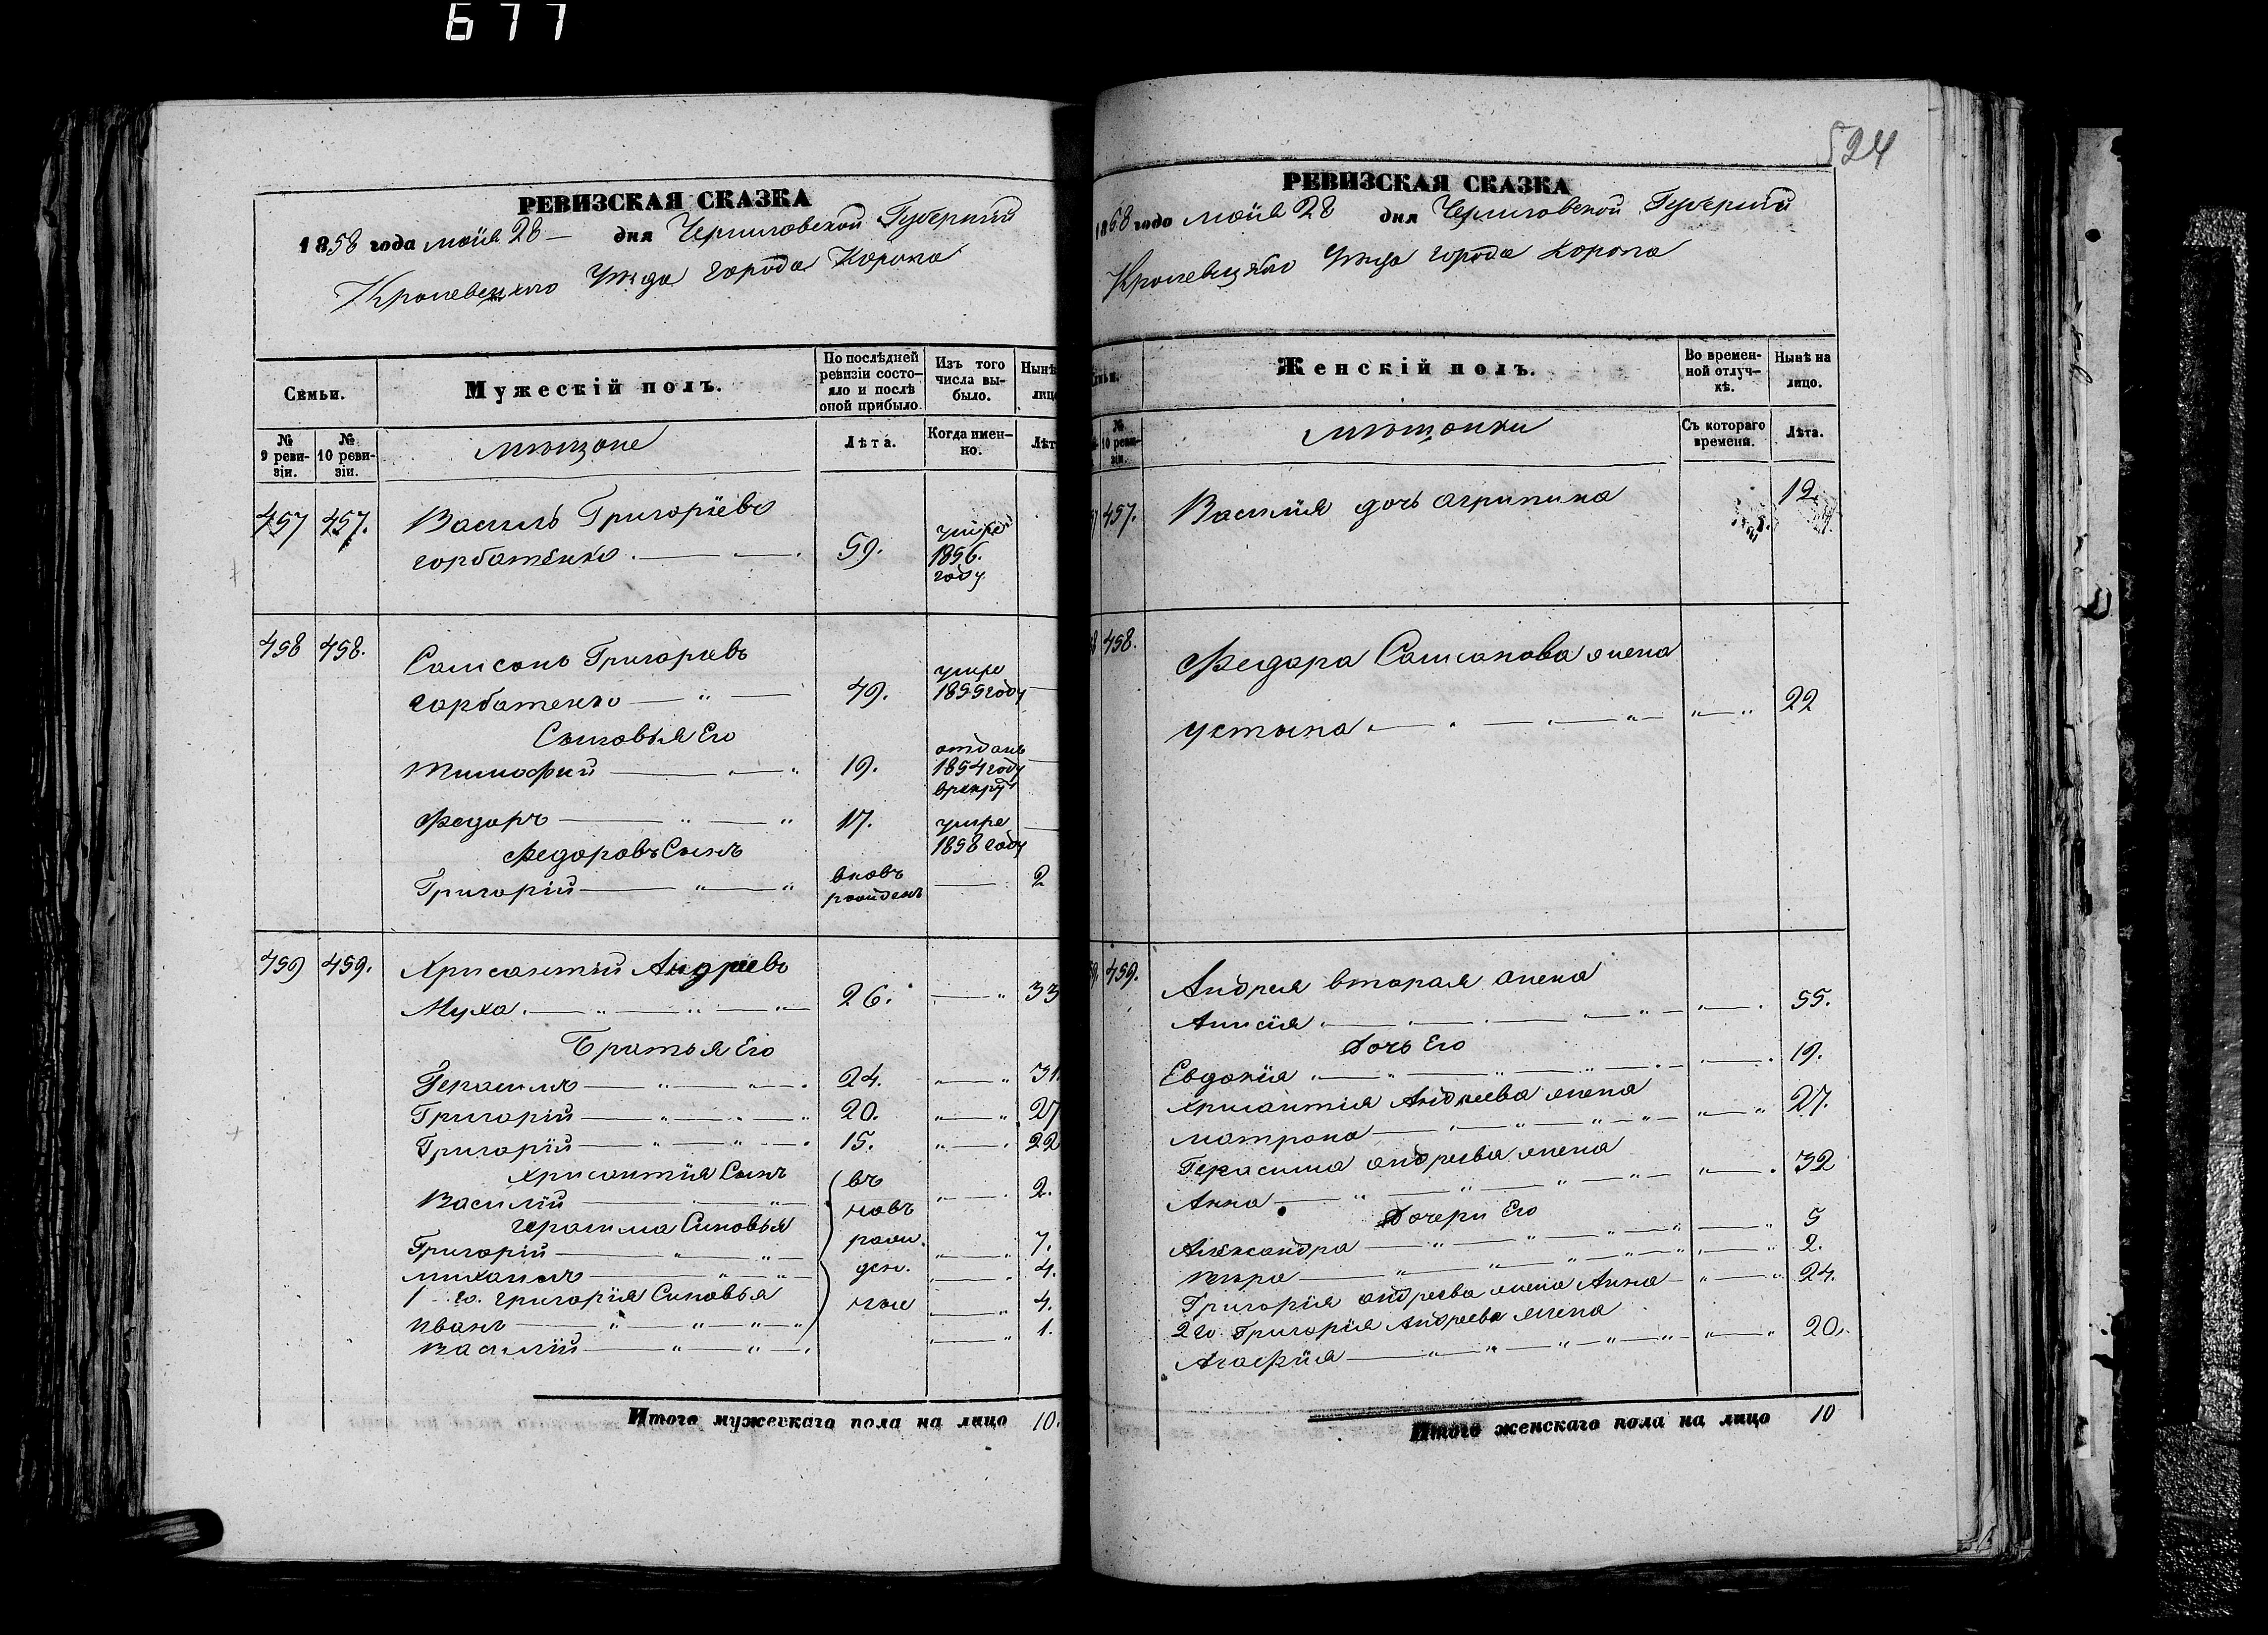 677
РЕВИЗСКАЯ СКАЗКА
1858 года маия 28 — дня Черниговской Губернии
Кролевецкого Уезда города Коропа
Семьи.
Мужескій полъ.
По послѣдней ревизіи состо-
яло и послѣ
оной прибыло.
Изъ того
числа вы-
было.
Нынѣ
лицо
№
9 реви-
зіи.
№
10 реви-
зіи.
мещане
Лѣта.
Когда имен-
но.
Лѣт
457 457. Василь Григоріевъ
горбатенко 59. умре
1856.
году
458 458. Самсонъ Григорьевъ
горбатенко 49. умре
1855 году
Сыновья Его
Тимофий 19. отданъ
1854 году
врекрут
Федоръ 17. умре
1858 году
Федоровъ Сынъ
Григорій вновь
рожденъ 2
459 459. Хрисантій Андреевъ
Муха 26. 33
Братья Его
Герасимъ 24. 31.
Григорій 20. 27
Григорій 15. 22
Хрисантія Сынъ
Василій 2.
Герасима Синовья
Григорій 7.
Михаилъ 4.
1 го. Григорія Синовья
Иванъ 4.
Василій 1.
въ
новь
рож.
ден.
ные
Итого мужескаго пола на лицо 10.
524
РЕВИЗСКАЯ СКАЗКА
1858 года маия 28 дня Черниговской Губернии
Кролевецкого Уезда города Коропа
Женскій полъ.
Во времен-
ной отлуч-
кѣ.
Нынѣ на
лицо.
№
10 реви-
зіи.
мещанки
Съ котораго
времени.
Лѣта.
457. Василія дочь агрипина 12.
458. Федора Самсонова жена
устына 22
459. Андрея вторая жена
Анисія 55.
Дочь Его
Евдокія 19.
Хрисантія Андреева жена
матрона 27.
Герасима андреева жена
Анна 32
Дочери Его
Александра 5
Вѣра 2.
Григорія андреева жена Анна 24.
2 го. Григорія Андреева жена
Агафія 20.
Итого женскаго пола на лицо 10